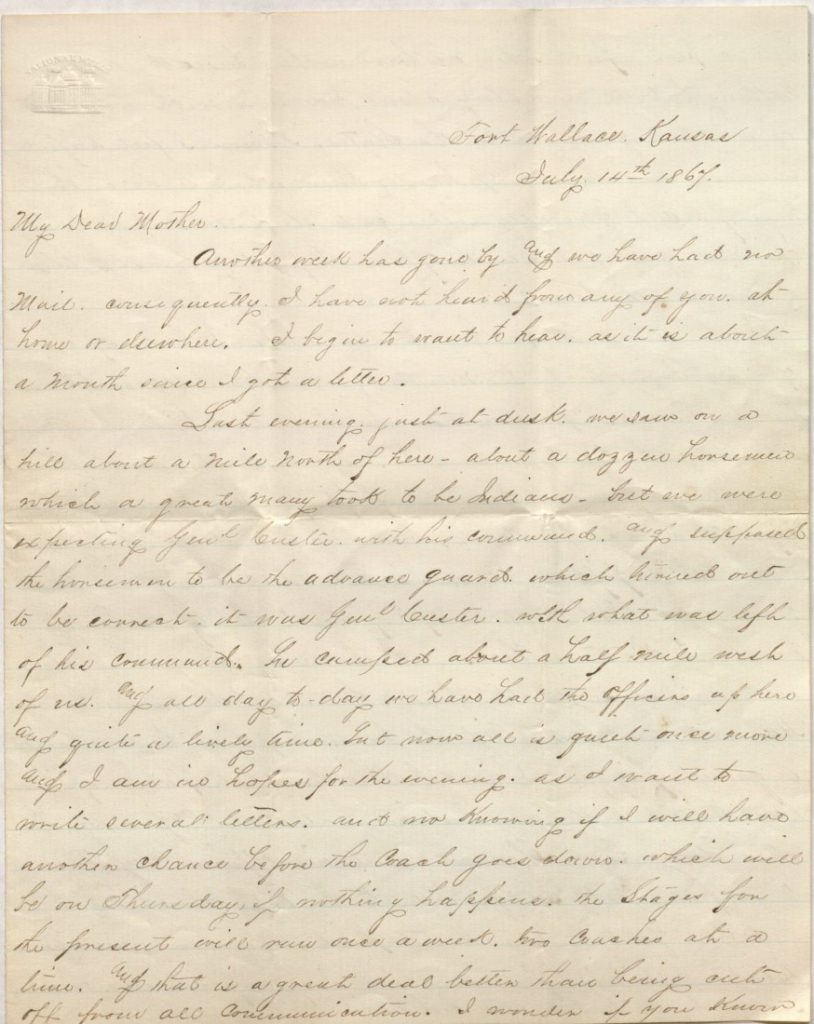 Fort Wallace. Kansas
July. 14th 1867.
My Dear Mother.
Another week has gone by and we have had no
Mail. consequently. I have not heard from any of you. at
home or elsewhere. I begin to want to hear. as it is about
a Month since I got a letter.
Last evening. just at dusk. we saw on a
hill about a Mile North of here - about a dozzen horsemen
which a great many took to be Indians - but we were
expecting Genl Custer. with his command. and supposed
the horsemen to be the advance guard. which turned out
to be correct. it was Genl Custer. with what was left
of his command. he camped about a half mile west
of us. and all day to-day we have had the officers up here
and quite a lively time. but now all is quiet once more
and I am in hopes for the evening. as I want to
write several letters. and no Knowing if I will have
another chance before the Coach goes down. which will
be on Thursday, if nothing happens. the Stages for
the present will run once a week. two Coaches at a
time. and that is a great deal better than being cut
off from all Communication. I wonder if you Know